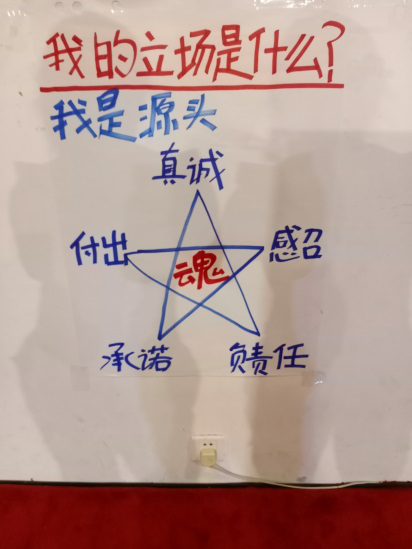 我的立场是什么?
我是源头
真诚
付出 感召
魂
承诺 负责任